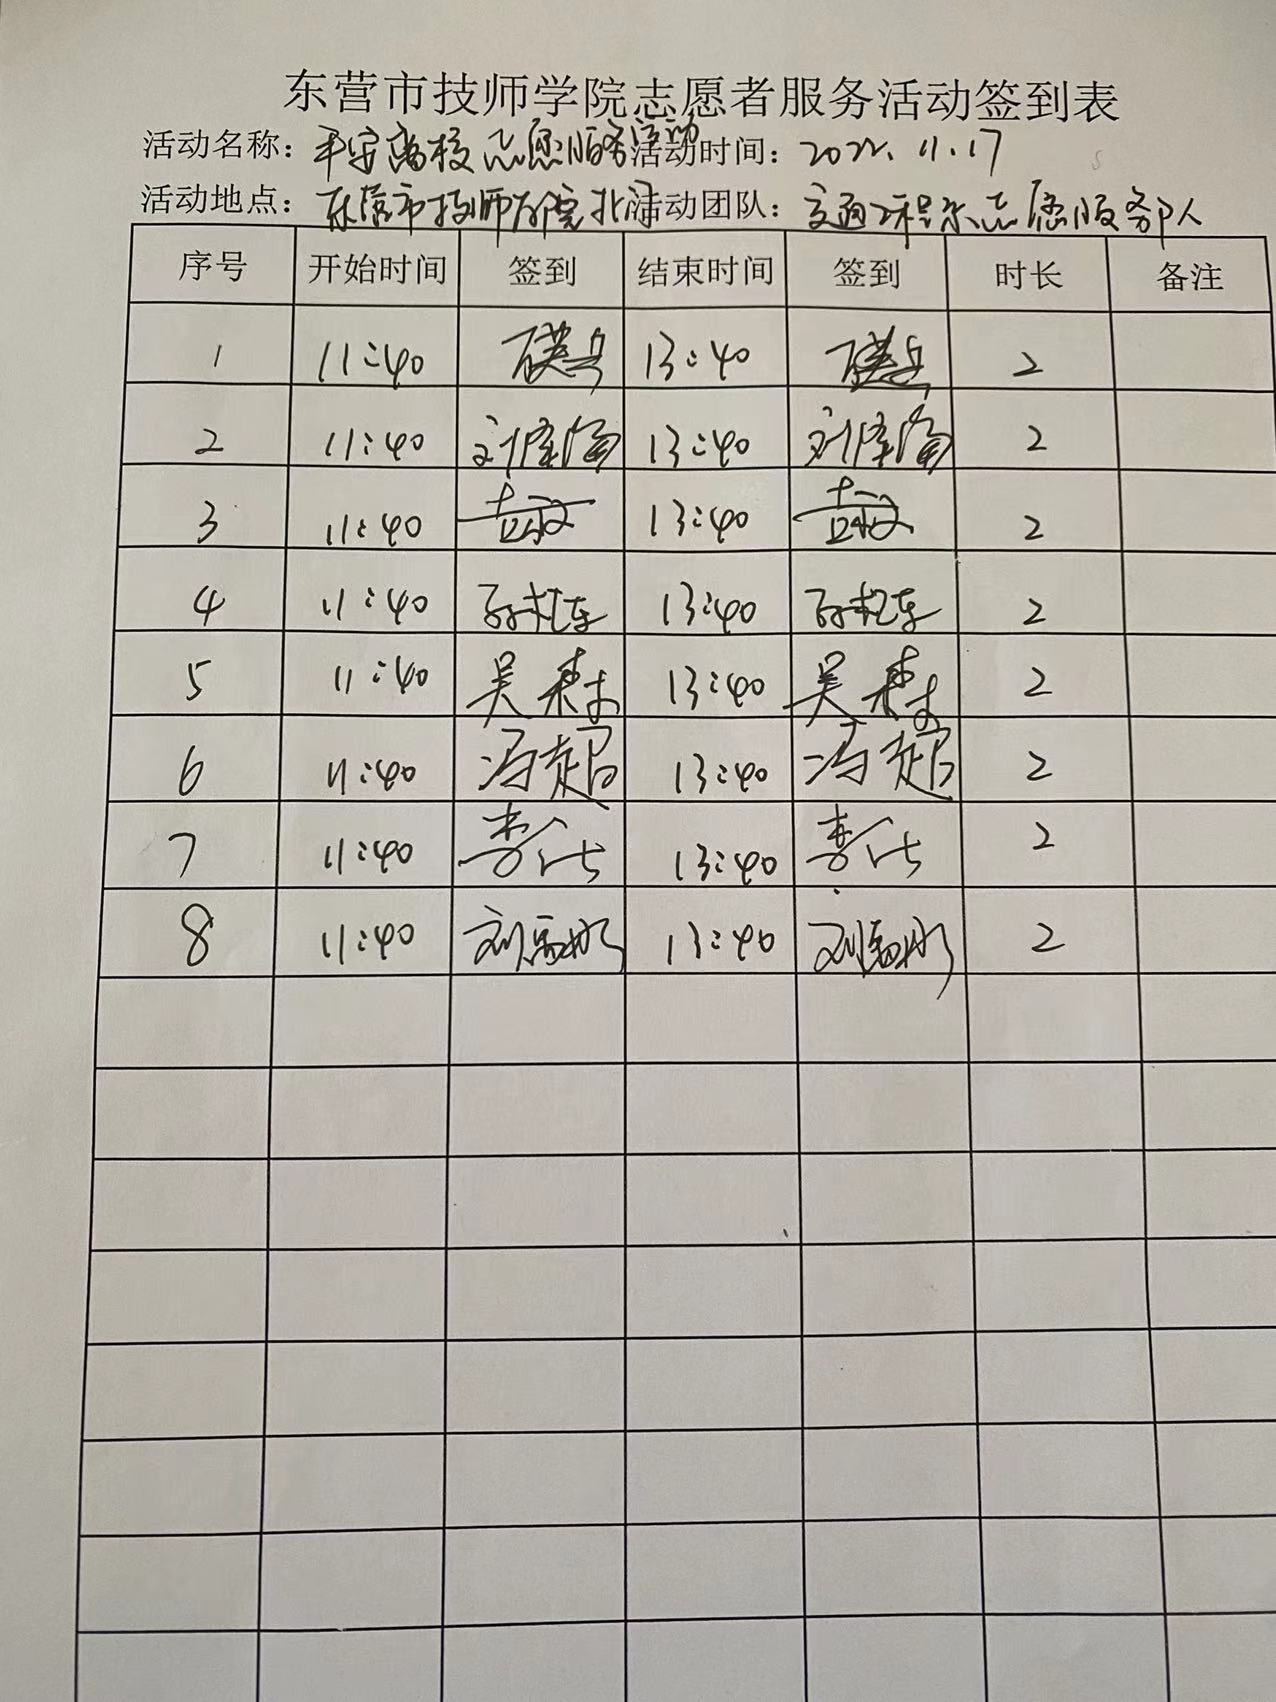 东营市技师学院志愿者服务活动签到表
活动名称：平安离校志愿服务活动 活动时间：2022.11.17
活动地点：东营市技师学院北门 活动团队：交通工程系志愿服务部人
序号 开始时间 签到 结束时间 签到 时长 备注
1 11:40 13:40 2
2 11:40 刘 13:40 刘 2
3 11:40 13:40 2
4 11:40 孙 13:40 孙 2
5 11:40 吴 13:40 吴 2
6 11:40 冯超 13:40 冯超 2
7 11:40 李 13:40 李 2
8 11:40 刘 13:40 刘 2